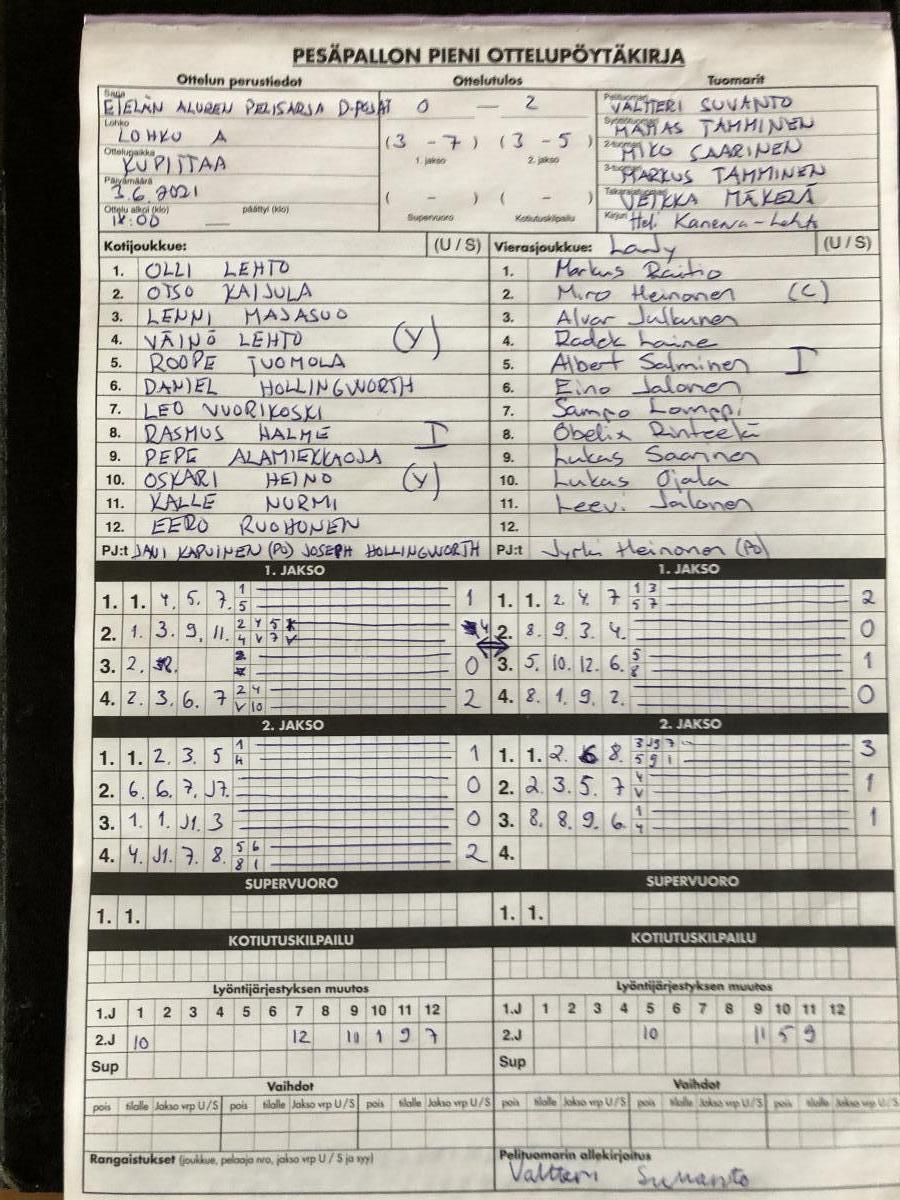 PESÄPALLON PIENI OTTELUPÖYTÄKIRJA
Ottelun perustiedot Ottelutulos Tuomarit
Sarja ETELÄN ALUEEN PELISARJA D-POJAT 0 – 2 Pelituomari VALTTERI SUVANTO
Lohko LOHKO A (3 – 7) (3 – 5) Syöttötuomari TAMMINEN
1. jakso 2. jakso
Ottelupaikka KUPITTAA 2-tuomari MIKO SAARINEN
Päivämäärä 3.6.2021 ( – ) ( – ) 3-tuomari MARKUS TAMMINEN
Takarajatuomari VEIKKA MÄKELÄ
Ottelu alkoi (klo) 18:00 päättyi (klo) Supervuoro Kotiutuskilpailu Kirjuri Heli Kanerva-Lehto
Kotijoukkue: (U / S) Vierasjoukkue: (U / S)
1. OLLI LEHTO 1. Markus Raitio
2. OTSO KAIJULA 2. Miro Heinonen (C)
3. LENNI MAJASUO 3. Alvar Julkunen
4. VÄINÖ LEHTO (Y) 4. Radek Laine
5. ROOPE TUOMOLA 5. Albert Salminen I
6. DANIEL HOLLINGWORTH 6. Eino Jalonen
7. LEO VUORIKOSKI 7. Sampo Lamppi
8. RASMUS HALME I 8. Obelix
9. PEPE ALAMIEKKAOJA 9. Lukas Saarinen
10. OSKARI HEINO (Y) 10. Lukas Ojala
11. KALLE NURMI 11. Leevi Jalonen
12. EERO RUOHONEN 12.
PJ:t JANI KAPUINEN (PJ) JOSEPH HOLLINGWORTH PJ:t Jyrki Heinonen (PJ)
1. JAKSO 1. JAKSO
1. 1. 4. 5. 7. 1 5 1 1. 1. 2. 4. 7 1 3 5 7 2
2. 1. 3. 9, 11. 2 4 5 4 V 7 V 4 2. 8. 9. 3. 4. 0
3. 2. 0 3. 5. 10. 12. 6. 5 8 1
4. 2. 3. 6. 7 2 4 V 10 2 4. 8. 1. 9. 2. 0
2. JAKSO 2. JAKSO
1. 1. 2. 3. 5 1 4 1 1. 1. 2. 6 8. 3 J9 7 5 9 1 3
2. 6. 6. 7. J7. 0 2. 2. 3. 5. 7 4 V 1
3. 1. 1. J1. 3 0 3. 8. 8. 9. 6. 1 4 1
4. 4. J1. 7. 8. 5 6 8 1 2 4.
SUPERVUORO SUPERVUORO
1. 1. 1. 1.
KOTIUTUSKILPAILU KOTIUTUSKILPAILU
Lyöntijärjestyksen muutos Lyöntijärjestyksen muutos
1.J 1 2 3 4 5 6 7 8 9 10 11 12 1.J 1 2 3 4 5 6 7 8 9 10 11 12
2.J 10 12 11 1 9 7 2.J 10 11 5 9
Sup Sup
Vaihdot Vaihdot
pois tilalle Jakso vrp U/S pois tilalle Jakso vrp U/S pois tilalle Jakso vrp U/S pois tilalle Jakso vrp U/S pois tilalle Jakso vrp U/S pois tilalle Jakso vrp U/S
Rangaistukset (joukkue, pelaaja nro, jakso vrp U / S ja syy) Pelituomarin allekirjoitus
Valtteri Suvanto